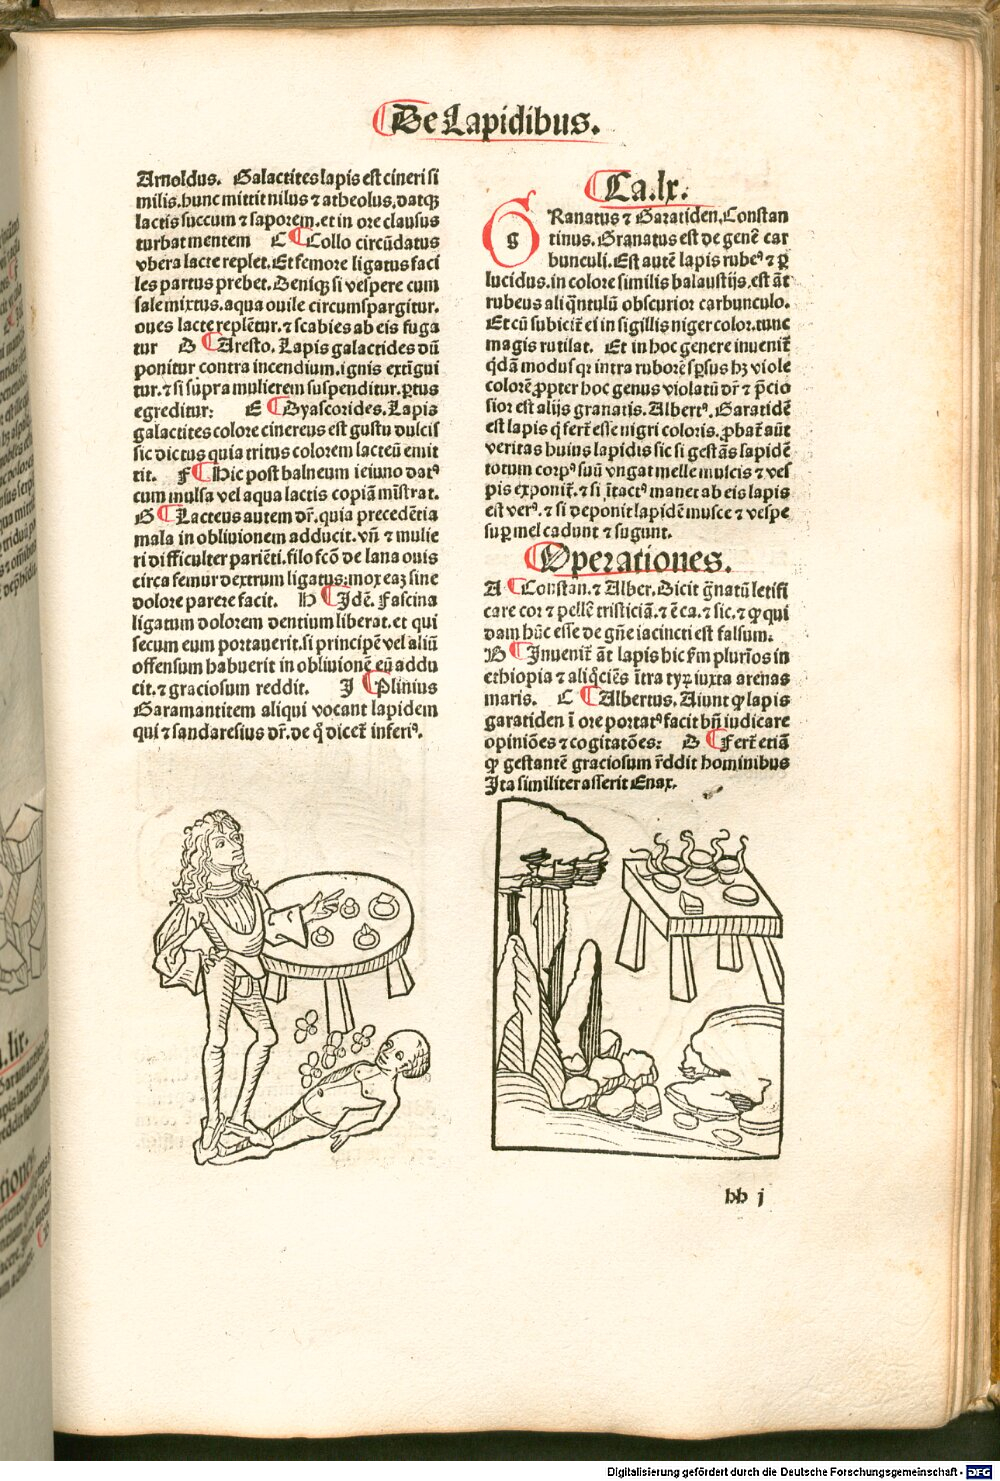 De Lapidibus.
Arnoldus. Galactites lapis est cineri si
milis. hunc mittit nilus ⁊ atheolus, datq̃
lactis succum ⁊ saporem. et in ore clausus
turbat mentem C Collo circũdatus
vbera lacte replet. Et femore ligatus faci
les partus prebet. Deniqꝫ si vespere cum
sale mixtus. aqua ouile circumspargitur.
oues lacte replẽtur. ⁊ scabies ab eis fuga
tur D Aresto. Lapis galactides dũ
ponitur contra incendium. ignis extĩgui
tur. ⁊ si supra mulierem suspenditur. ꝑtus
egreditur: E Dyascorides. Lapis
galactites colore cinereus est gustu dulcis
sic dictus quia tritus colorem lacteũ emit
tit. F Hic post balneum ieiuno datꝰ
cum mulsa vel aqua lactis copiã mĩstrat.
G Lacteus autem dr̃. quia precedẽtia
mala in obliuionem adducit. vñ ⁊ mulie
ri difficulter pariẽti. filo fcõ de lana ouis
circa femur dextrum ligatus: mox eaꝫ sine
dolore parere facit. H Idẽ. Fascina
ligatum dolorem dentium liberat. et qui
secum eum portauerit. si principẽ vel aliũ
offensum habuerit in obliuionẽ eũ addu
cit. ⁊ graciosum reddit. J Plinius
Garamantitem aliqui vocant lapidem
qui ⁊ sandaresius dr̃. de q̃ dicet̃ inferiꝰ.
Ca. lx.
g Ranatus ⁊ Garatiden. Constan
tinus. Granatus est de genẽ car
bunculi. Est autẽ lapis rubeꝰ ⁊ ꝑ
lucidus. in colore similis balaustijs. est ãt
rubeus aliq̃ntulũ obscurior carbunculo.
Et cũ subicit̃ ei in sigillis niger color. tunc
magis rutilat. Et in hoc genere inuenit̃
q̃dã modus qr̃ intra ruborẽ sꝑsus hꝫ viole
colorẽ. ꝓpter hoc genus violatũ dr̃ ⁊ p̃cio
sior est alijs granatis. Albertꝰ. Garatidẽ
est lapis q̃ fert̃ esse nigri coloris. ꝓbat̃ aũt
veritas huius lapidis sic si gestãs lapidẽ
totum corpꝰ suũ vngat melle muscis ⁊ ves
pis exponit̃. ⁊ si ĩtactꝰ manet ab eis lapis
est verꝰ. ⁊ si deponit lapidẽ musce ⁊ vespe
suꝑ mel cadunt ⁊ sugunt.
Operationes.
A Constan. ⁊ Alber. Dicit g̃natũ letifi
care cor ⁊ pellẽ tristiciã. ⁊ ẽ ca. ⁊ sic. ⁊ ꝙ qui
dam hũc esse de gñe iacincti est falsum.
B Inuenit̃ ãt lapis hic fm plurĩos in
ethiopia ⁊ aliq̃ciẽs ĩtra tyꝝ iuxta arenas
maris. C Albertus. Aiunt ꝙ lapis
garatiden ĩ ore portatꝰ facit bñ iudicare
opiniões ⁊ cogitatões: D Fert̃ etiã
ꝙ gestantẽ graciosum r̃ddit hominibus
Ita similiter asserit Enax.
hh j
Digitalisierung gefördert durch die Deutsche Forschungsgemeinschaft - DFG